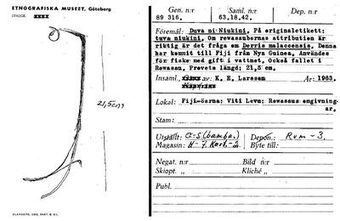 ETNOGRAFISKA MUSEET, Göteborg
21,5cm
Gen. n:r
Saml. n:r
Dep. n:r
89 316.
63.18.42.
Föremål: Duva ni-Niukini. På originaletikett:
tuva niukini. Om revasaubornas attribution är
riktig är det fråga om Derris malaccensis. Denna
har kommit till Fiji från Nya Guinea. Användes
för fiske med gift i vattnet. Också fallet i
Revasau. Provets längd: 21,5 cm.
Insaml. av: K. E. Larsson
År: 1963.
Lokal: Fiji-öarna: Viti Levu: Revasaus omgivning-
ar.
Stam:
Utställt:
Depon.: Rum-3.
Magasin:
Byte till:
Negat. n:r
Bild n:r
Skiopt. n:r
Kliché n:r
Publ.